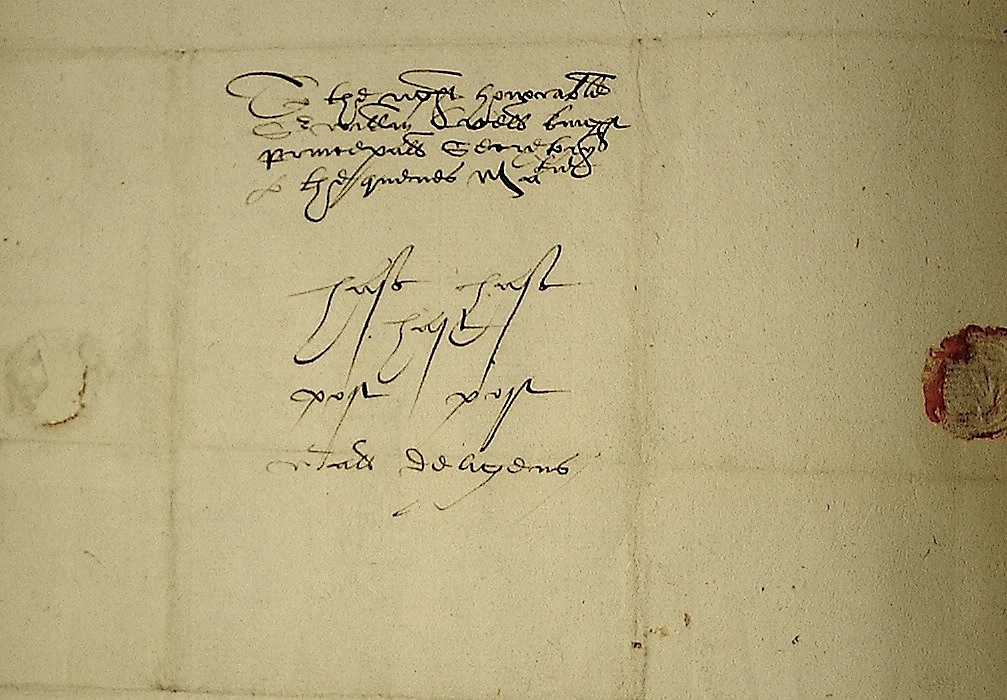 To the right honorable
Sr willm Cecell knight
princepall Secretory
to the quenes Matie
hast hast
hast
post post
wt all delygens